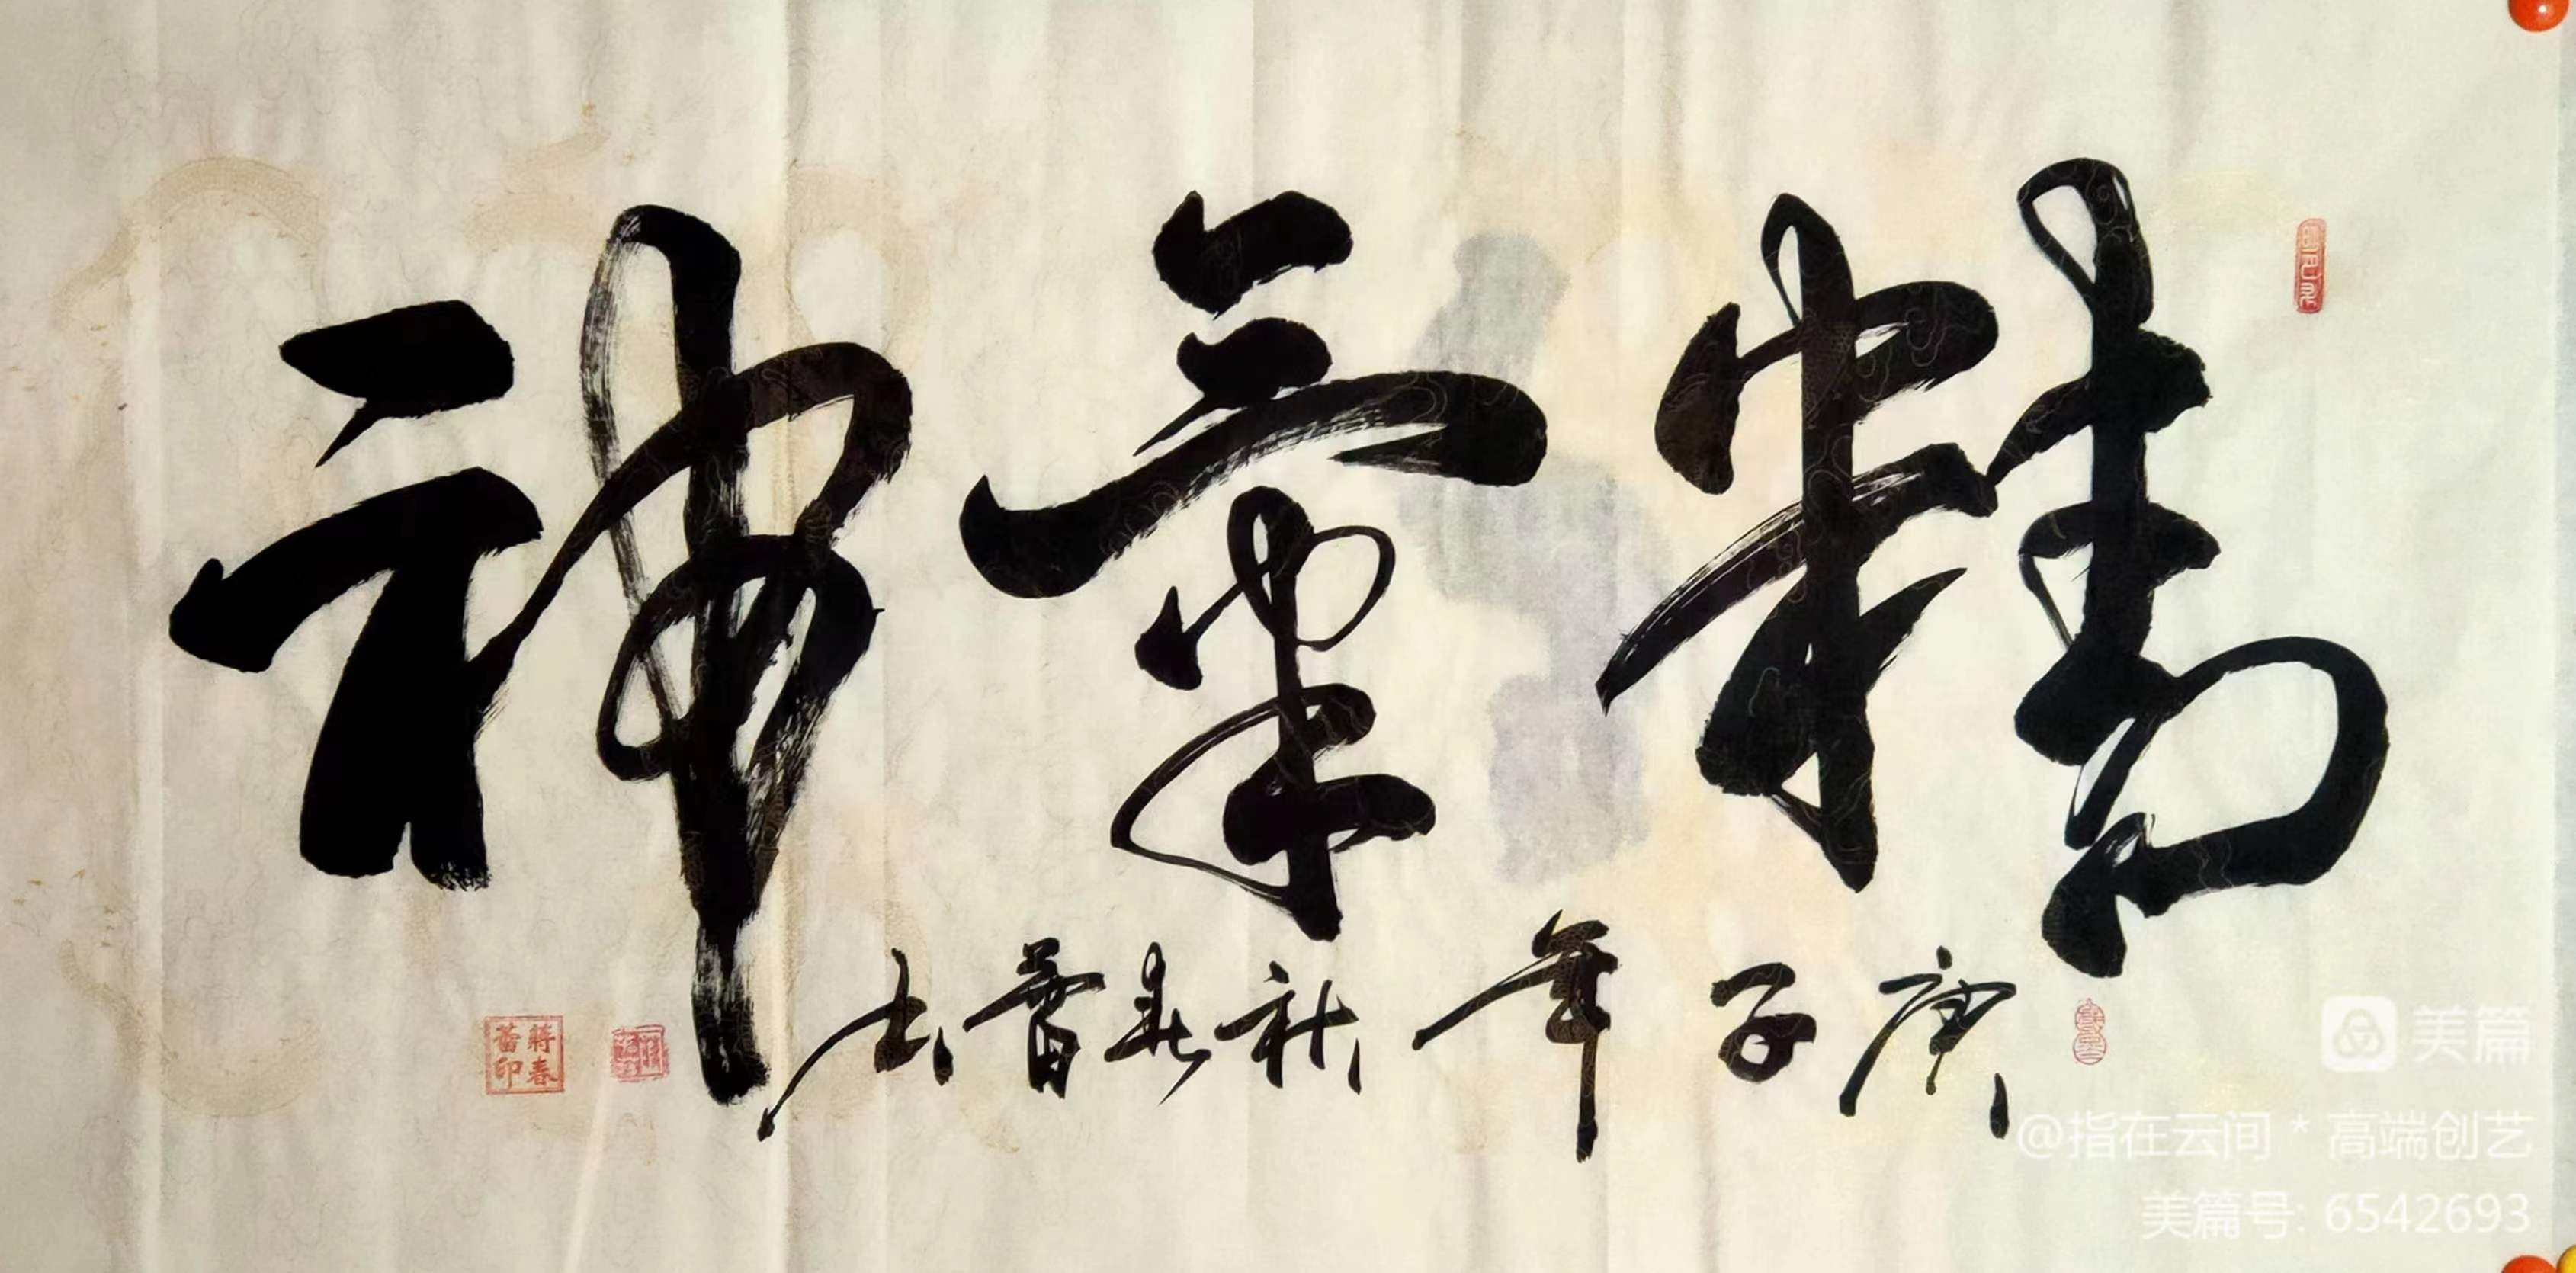 精氣神
庚子年秋春蕾书
蔣春蕾印
美篇
@指在云间 * 高端创艺
美篇号: 6542693